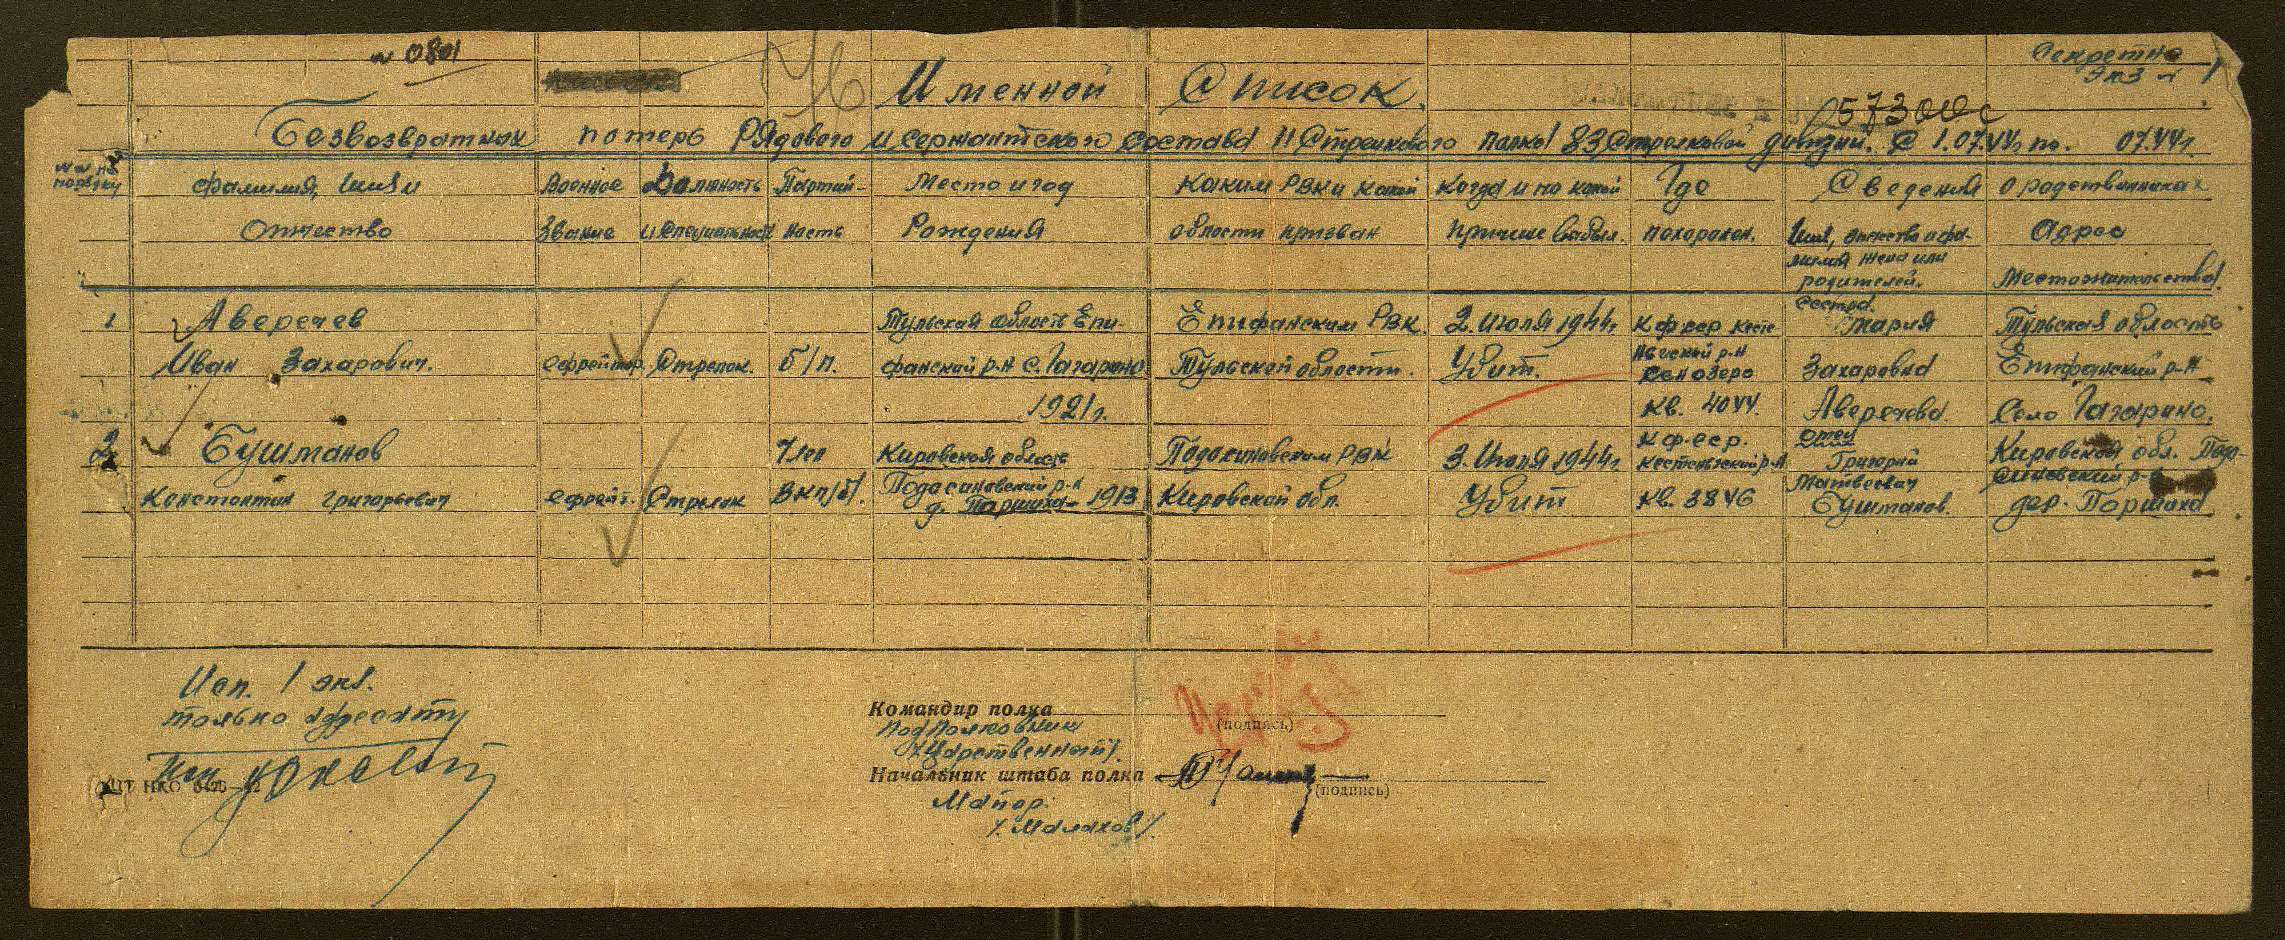 № 0801
Секретно
Экз № 1
Именной Список
57300с
Безвозвратных потерь Рядового и сержантского состава 11 Стрелкового полка 83 Стрелковой дивизии. С 1.07.44г по . 07.44г.
№№ по порядку
Фамилия, Имя и Отчество
Военное Звание
Должность и специальност
Партий-ность
Место и год Рождения
Каким РВК и какой области призван
Когда и по какой причине выбыл.
Где похоронен.
Сведения о родственниках
Имя, отчество и фа-
милия жены или
родителей.
Адрес
Местожительства.
1 Аверечев
Иван Захарович.
ефрейтор.
Стрелок.
б/п.
Тульская область Епи-
фанский р-н с. Гагарино
1921г.
Епифанским РВК
Тульской области.
2. Июля 1944г.
Убит.
К.ф.сср Кесте-
ньгский р-н
кв. 4044.
Сестра.
Мария
Захаровна
Аверечева
Тульская область
Епифанский р-н
Село Гагарино.
2 Буштанов
Константин Григорьевич
ефрейт.
Стрелок
Член
ВКП/б/.
Кировская область
Подосиновский р-н
д. Поршиха - 1913
Подосиновским РВК
Кировской обл.
3. Июля 1944г.
Убит
К.ф.сср.
Кестеньгский р-н
Кв. 3846
отец
Григорий
Матвеевич
Буштанов.
Кировской обл. Подо-
синовский р-
дер. Поршиха
Исп. 1 экз.
только адресату
Командир полка
(подпись)
подполковник
/Царственный/.
Начальник штаба полка
(подпись)
Майор.
/. Малахов/.